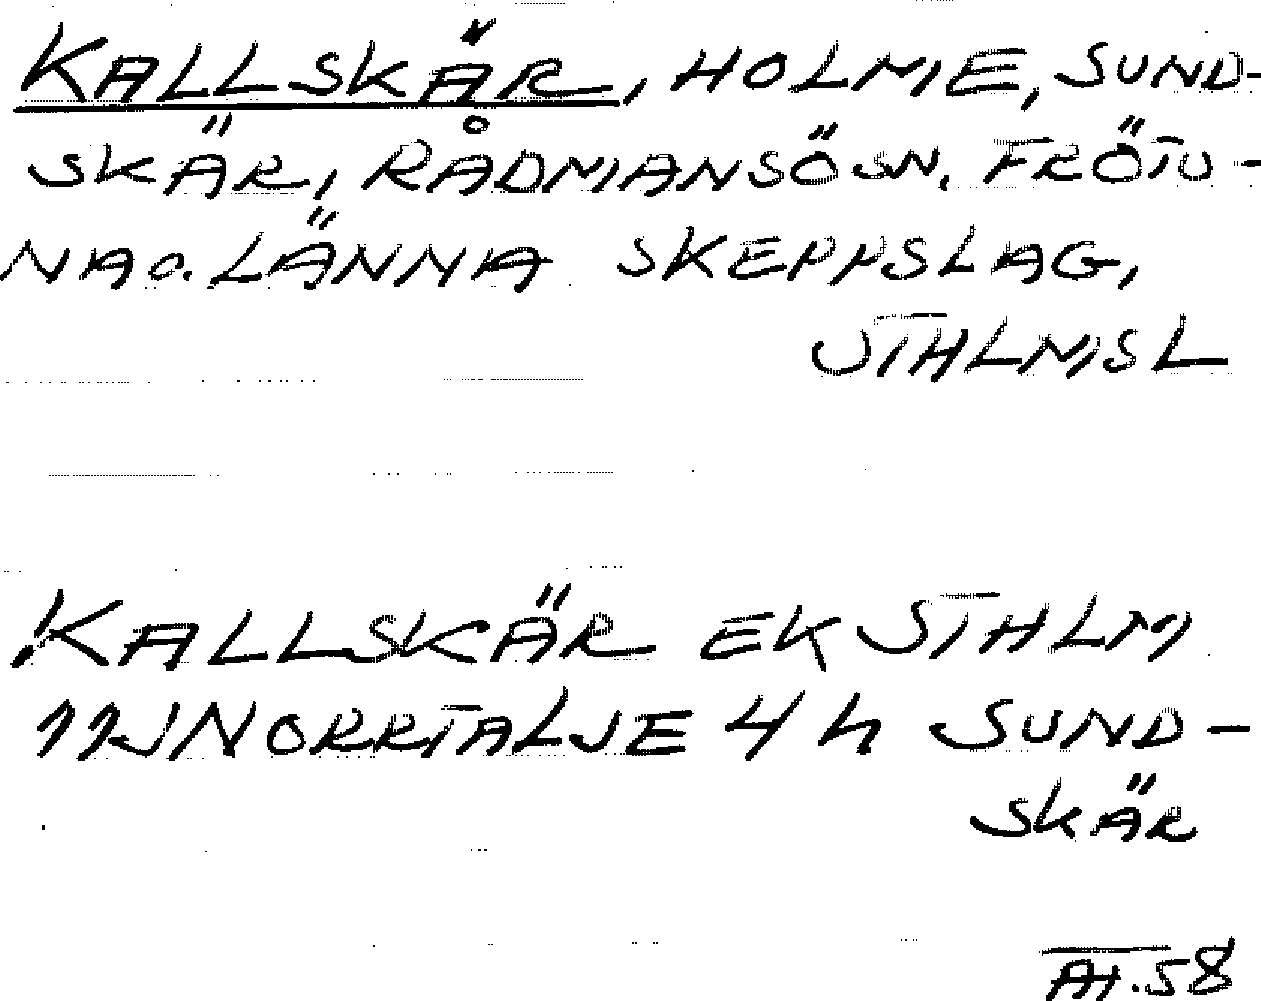 KALLSKÄR, HOLME, SUND-
SKÄR, RÅDMANSÖ SN. FRÖTU-
NA O. LÄNNA SKEPPSLAG,
STHLMSL
KALLSKÄR EK STHLM
11J NORRTÄLJE 4 h SUND-
SKÄR
AH.58